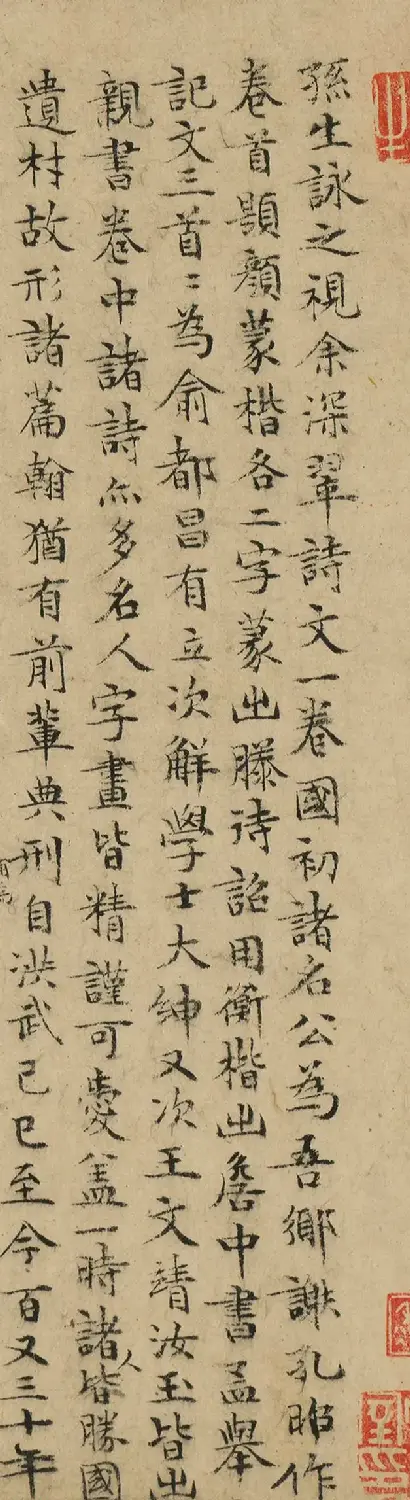 孫生詠之視余深翠詩文一卷國初諸名公為吾鄉謝孔昭作
卷首顯顏篆楷各二字篆出滕待詔用衡楷出詹中書孟舉
記文三首〻為俞都昌有立次解學士大紳又次王文靖汝玉皆出
親書卷中諸詩亦多名人字畫皆精謹可愛蓋一時諸人皆勝國
遺材故形諸篇翰猶有前輩典刑自洪武己巳至今百又三十年